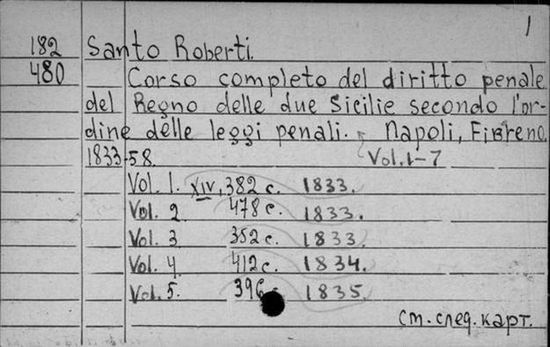 1
182 Santo Roberti.
480 Corso completo del diritto penale
del Regno delle due Sicilie secondo l'or-
dine delle leggi penali. Napoli, Fibreno,
1833-58. Vol. 1-7
Vol. 1. XIV, 382 c. 1833.
Vol. 2 478 c. 1833.
Vol. 3 352 c. 1833.
Vol. 4 412 c. 1834.
Vol. 5. 396 c 1835.
См. след. карт.